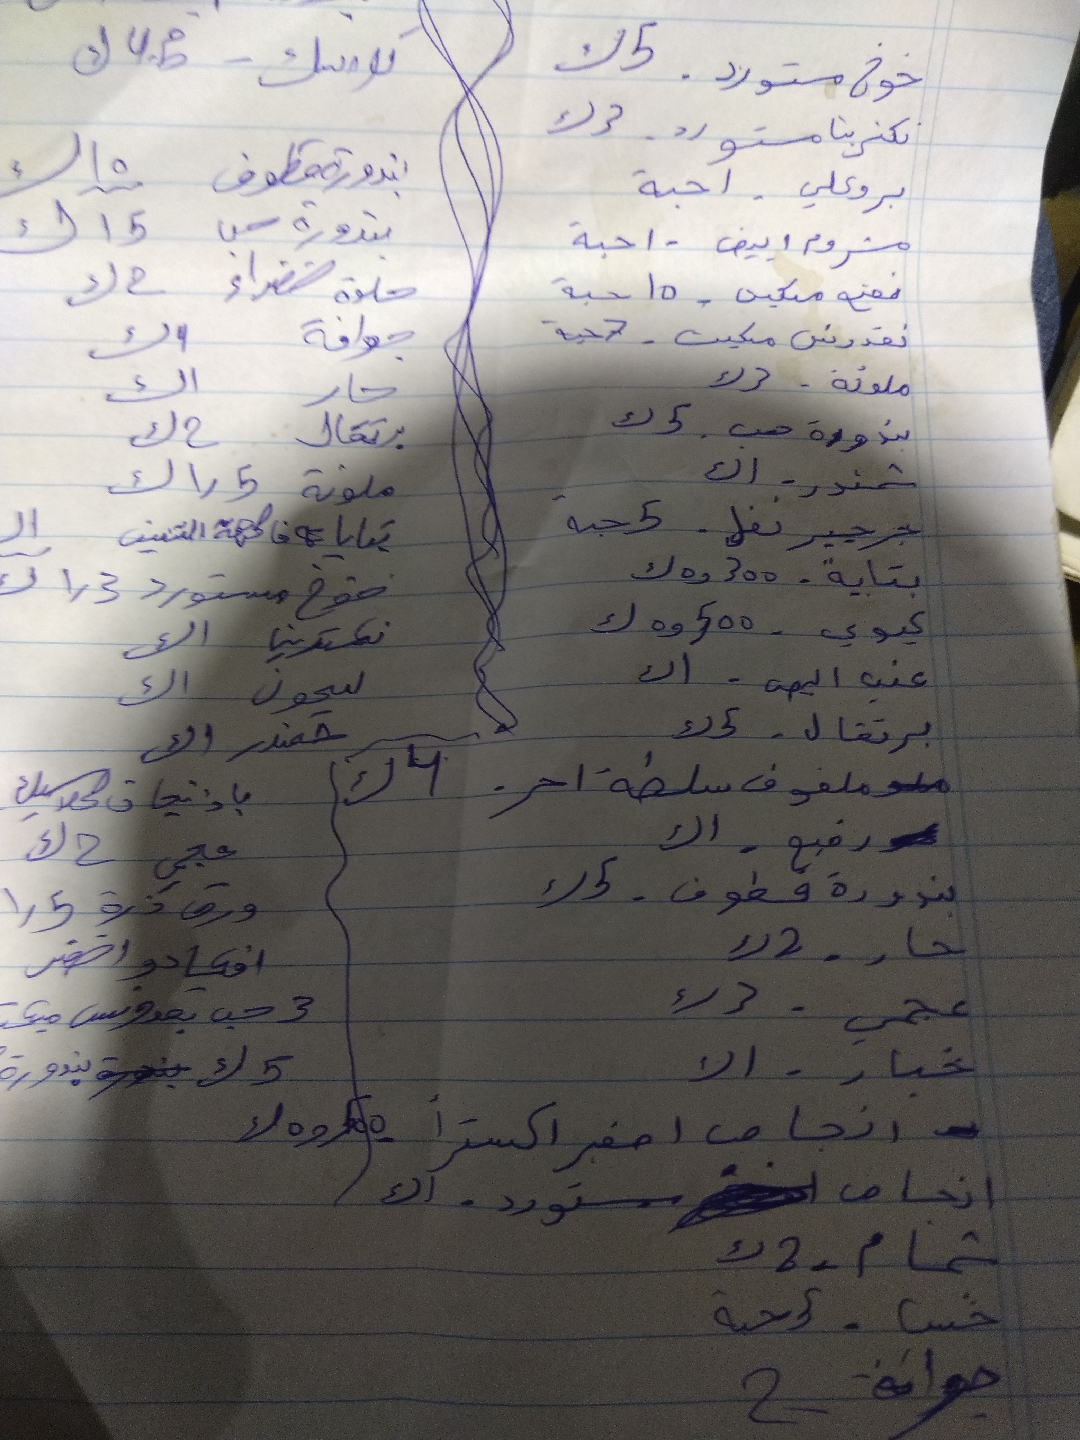 خوخ مستورد - 5ك
نكترينا مستورد - 3ك
بروكلي - 1حبة
مشروم ابيض - 1حبة
نعنع مبكيت - 10حبة
بقدونس مبكيت - 7حبة
ملونة - 3ك
بندورة حب - 5ك
شمندر - 1ك
جرجير نغل - 5حبة
بتاية - 300و0ك
كيوي - 500و0ك
عنب ابيض - 1ك
برتقال - 5ك
ملفوف سلطة احمر - 4ك
رفيع - 1ك
بندورة قطوف - 5ك
حار - 2ك
عجمي - 3ك
خيار - 1ك
انجاص اصفر اكسترا - 500و0ك
انجاص مستورد - 1ك
شمام - 2ك
خسا - 5حبة
جوافة - 2
كلاسيك -
بندورة قطوف 15ك
بندورة حب 15ك
حلوة خضراء 2ك
جوافة 4ك
حار 1ك
برتقال 2ك
ملونة 1,5ك
بتايا فاكهة التنين
خوخ مستورد 1,3ك
نكترينا 1ك
ليمون 1ك
شمندر 1ك
باذنجان كلاسيك
عجمي 2ك
ورق ذرة 1,5
افوكادو اخضر
3 حب بقدونس
5ك بندورة